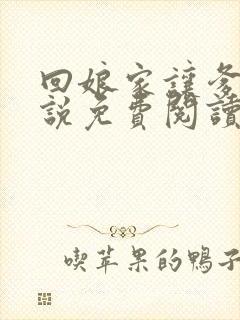 回娘家讓爹
說免費閱讀
喫苹果的鴨子